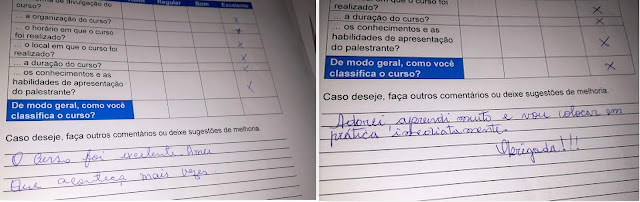 divulgação do
curso?
Regular Bom Excelente
... a organização do curso?
... o horário em que o curso
foi realizado?
... o local em que o curso foi
realizado?
... a duração do curso?
... os conhecimentos e as
habilidades de apresentação
do palestrante?
De modo geral, como você
classifica o curso?
Caso deseje, faça outros comentários ou deixe sugestões de melhoria.
O curso foi excelente
Que aconteça mais vezes
em que o curso foi
realizado?
... a duração do curso?
... os conhecimentos e as
habilidades de apresentação
do palestrante?
De modo geral, como você
classifica o curso?
Caso deseje, faça outros comentários ou deixe sugestões de melhoria.
Adorei aprendi muito e vou colocar em
prática imediatamente.
Obrigada!!!